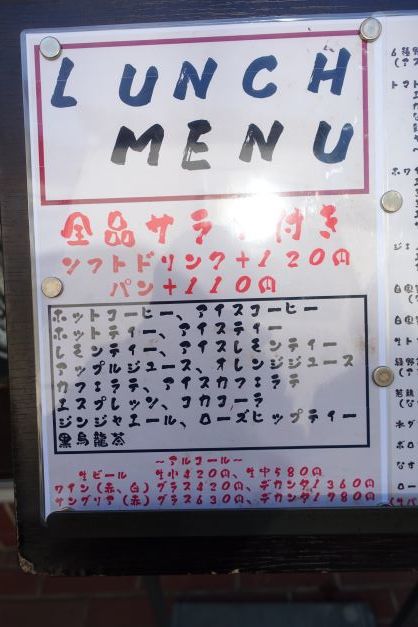 LUNCH
MENU
全品サラダ付き
ソフトドリンク+120円
パン+110円
ホットコーヒー、アイスコーヒー
ホットティー、アイスティー
レモンティー、アイスレモンティー
アップルジュース、オレンジジュース
カフェラテ、アイスカフェラテ
エスプレッソ、コカコーラ
ジンジャエール、ローズヒップティー
黒烏龍茶
～アルコール～
生ビール 生小420円、生中580円
ワイン(赤、白)グラス420円、デカンタ1360円
サングリア(赤)グラス630円、デカンタ1780円